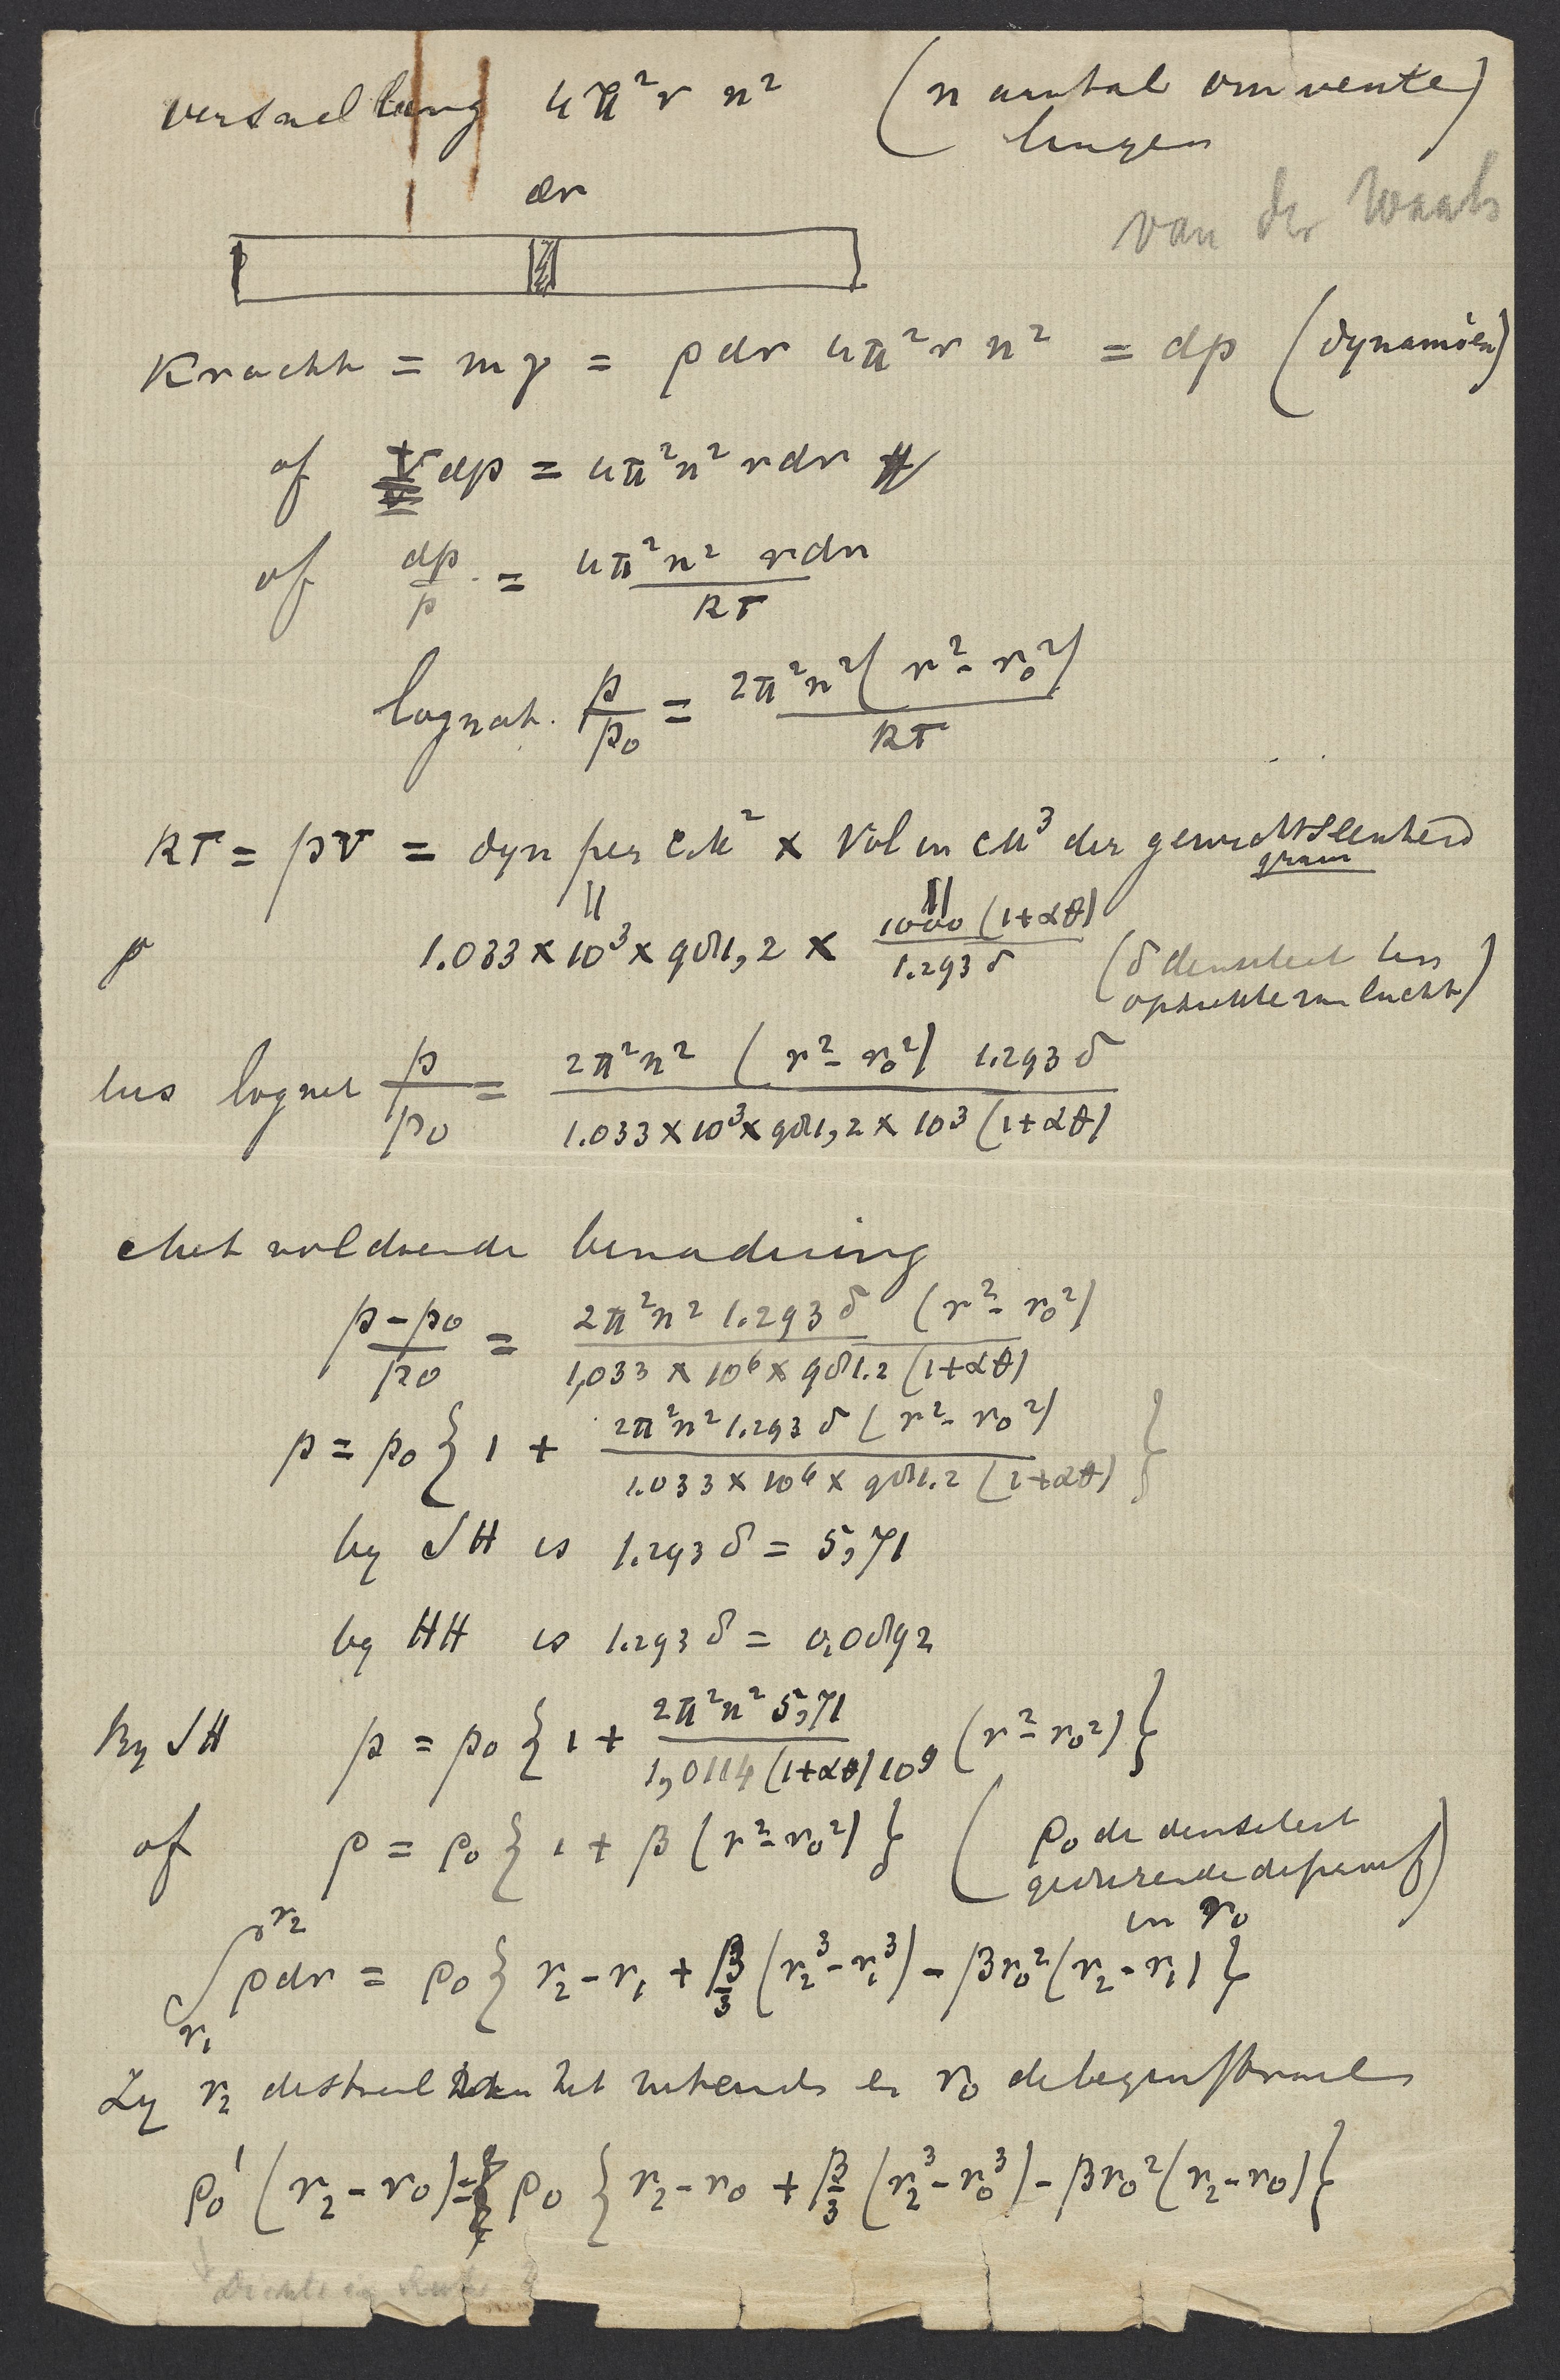 versnelling 4π²r n² (n aantal omwente
lingen)
van der Waals
dr
Kracht = mγ = ρdr 4π²r n² = dp (dynamiën)
of v dp = 4π²n² rdr
of dp/p = 4π²n² rdr / RT
lognat. p/p₀ = 2π²n²(r² - r₀²) / RT
RT = pv = dyn per cM² x Vol in cM³ der gewichtseenheid
gram
p 1.033 x 10³ x 981,2 x 1000 (1+αθ) / 1.293 δ (δ densiteit ten
opzichte van lucht)
dus lognat p/p₀ = 2π²n² (r² - r₀²) 1.293 δ / 1.033 x 10³ x 981,2 x 10³ (1+αθ)
Met voldoende benadering
p - p₀ / p₀ = 2π²n² 1.293 δ (r² - r₀²) / 1,033 x 10⁶ x 981.2 (1+αθ)
p = p₀ { 1 + 2π²n² 1.293 δ (r² - r₀²) / 1.033 x 10⁶ x 981.2 (1+αθ) }
by JH is 1.293 δ = 5,71
by HH is 1.293 δ = 0,0892
By JH p = p₀ { 1 + 2π²n² 5,71 / 1,0114 (1+αθ) 10⁹ (r² - r₀²) }
of ρ = ρ₀ { 1 + β (r² - r₀²) } (ρ₀ de densiteit
gedurende de proef)
in r₀
∫ r₁ r₂ ρdr = ρ₀ { r₂ - r₁ + β/3 (r₂³ - r₁³) - βr₀² (r₂ - r₁) }
Zy r₂ de straal het uiteinde en r₀ de beginstraal
ρ₀' (r₂ - r₀) = ρ₀ { r₂ - r₀ + β/3 (r₂³ - r₀³) - βr₀² (r₂ - r₀) }
Dichte in